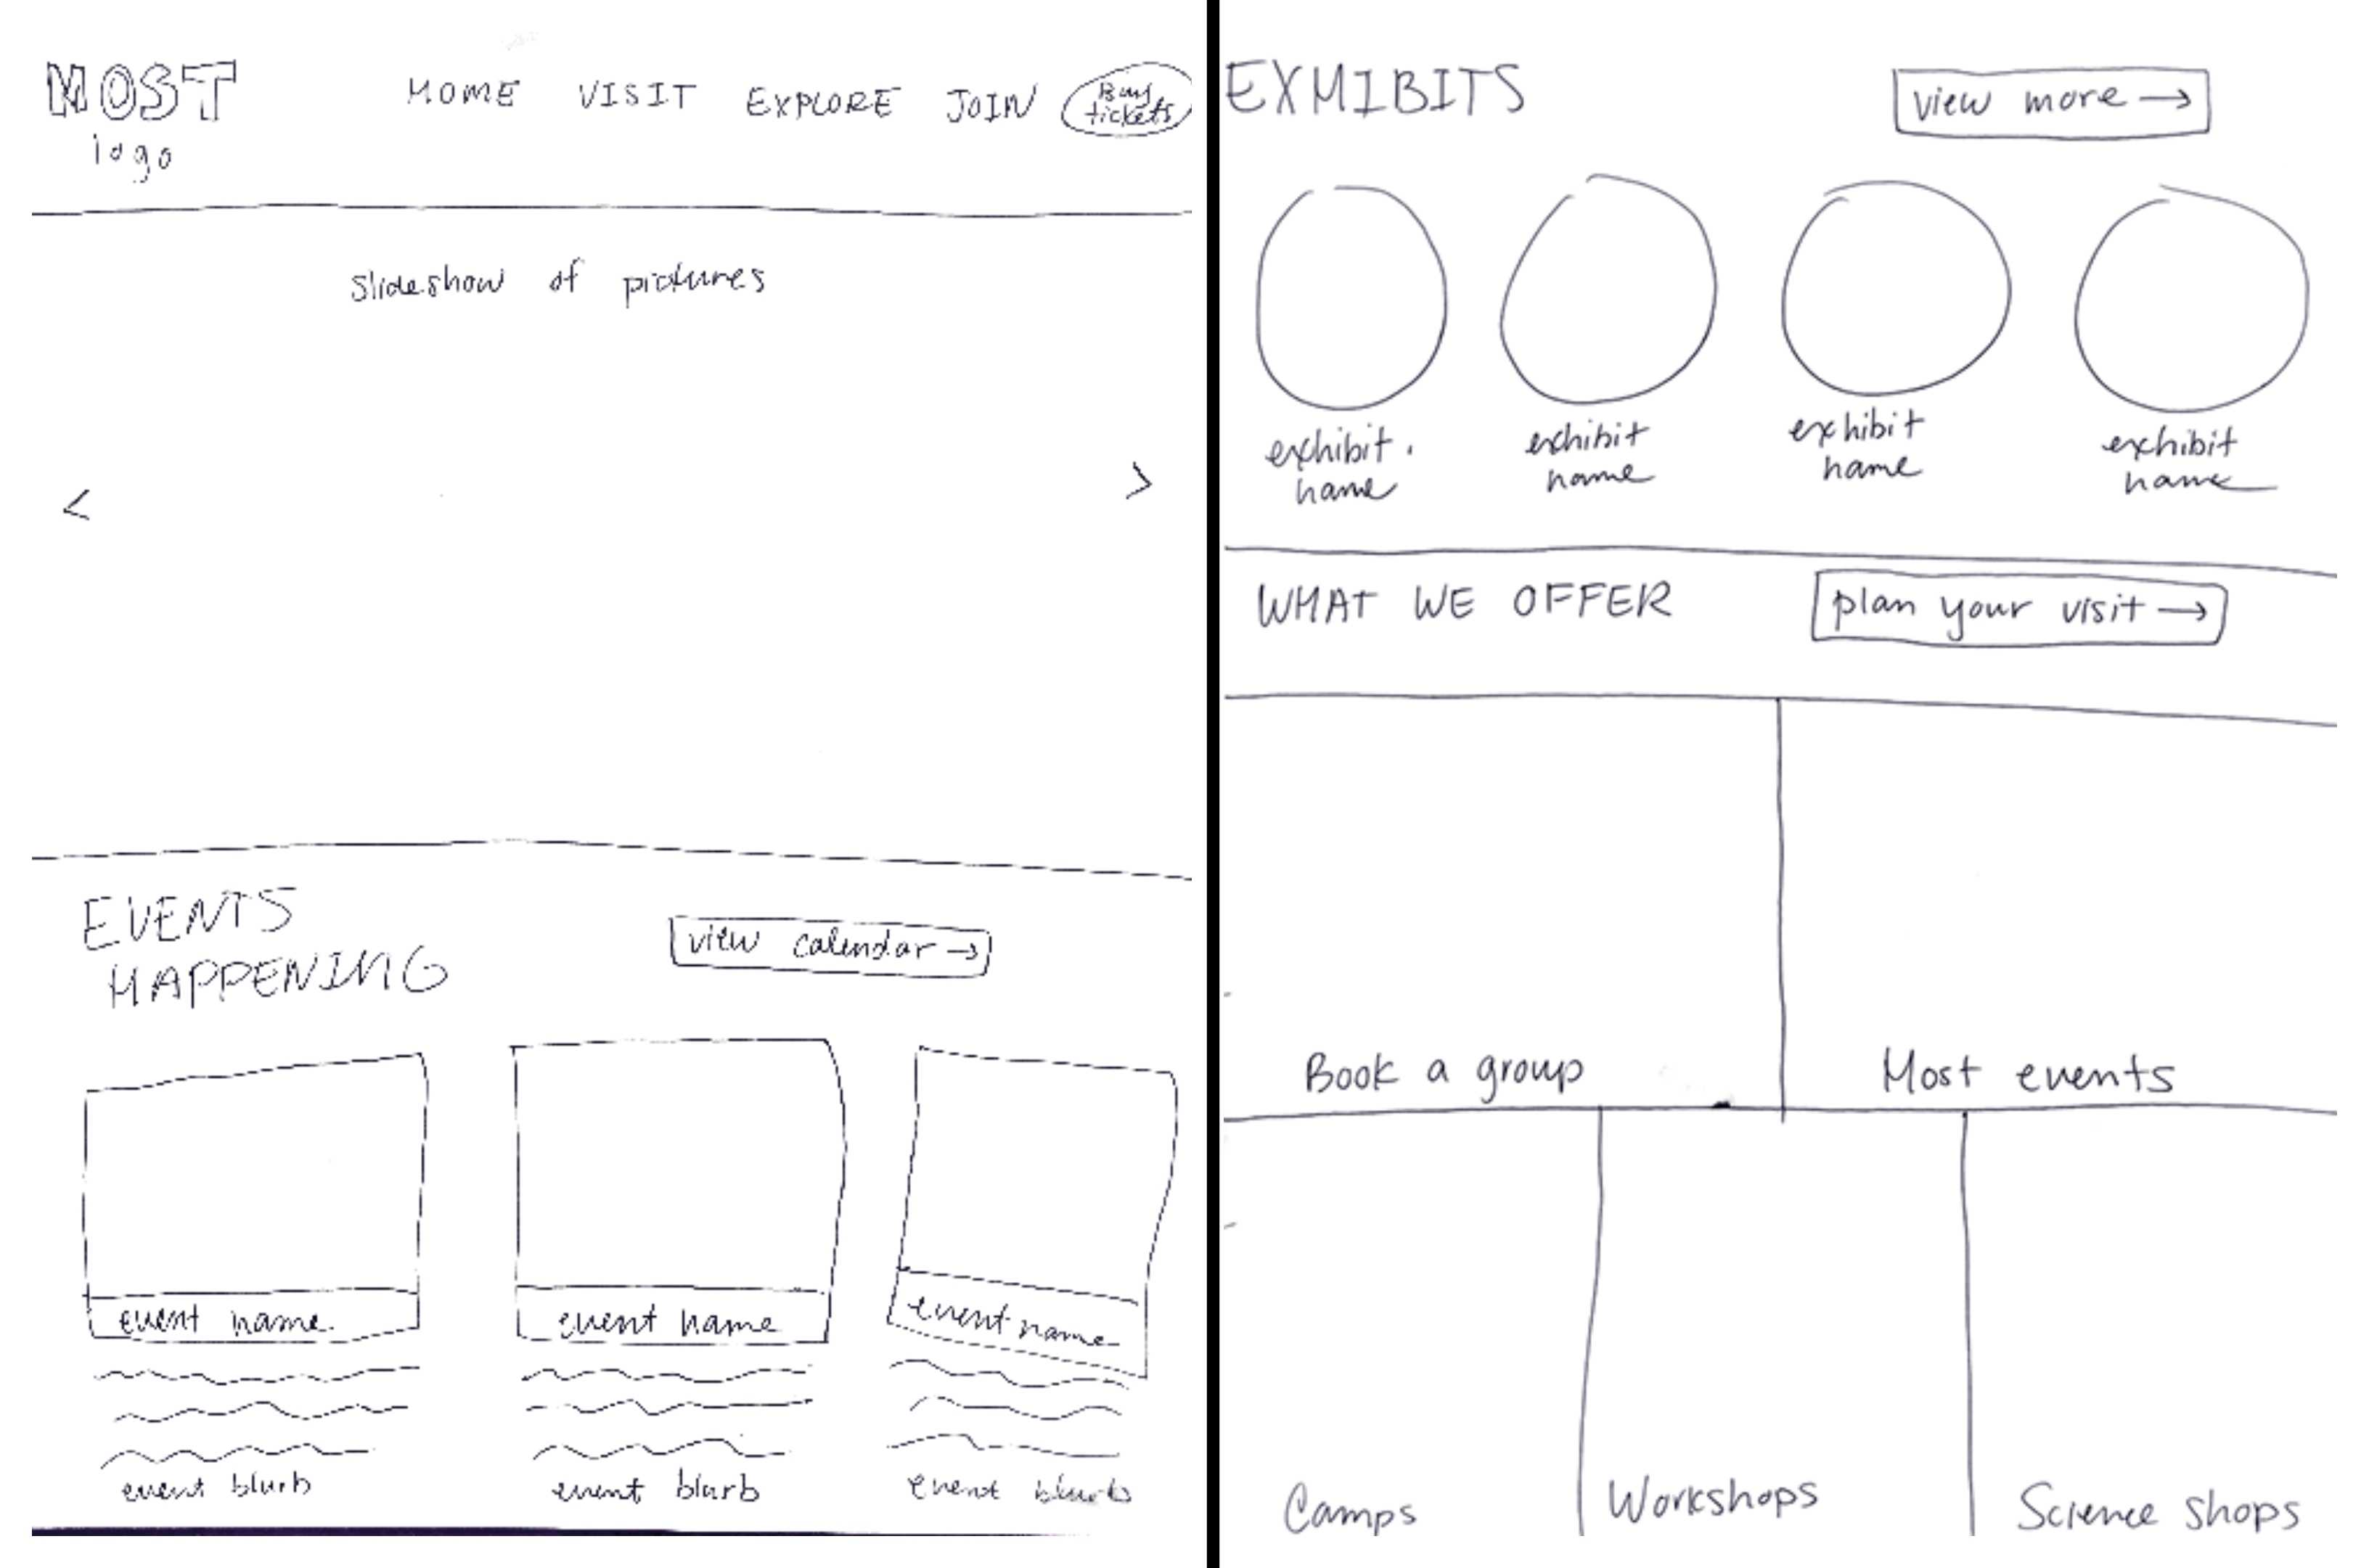 MOST
logo
HOME VISIT EXPLORE JOIN Buy
tickets
slideshow of pictures
< >
EVENTS
HAPPENING
view calendar →
event name event name event name
event blurb event blurb event blurb
EXHIBITS view more →
exhibit exhibit exhibit exhibit
name name name name
WHAT WE OFFER plan your visit →
Book a group Most events
Camps Workshops Science shops